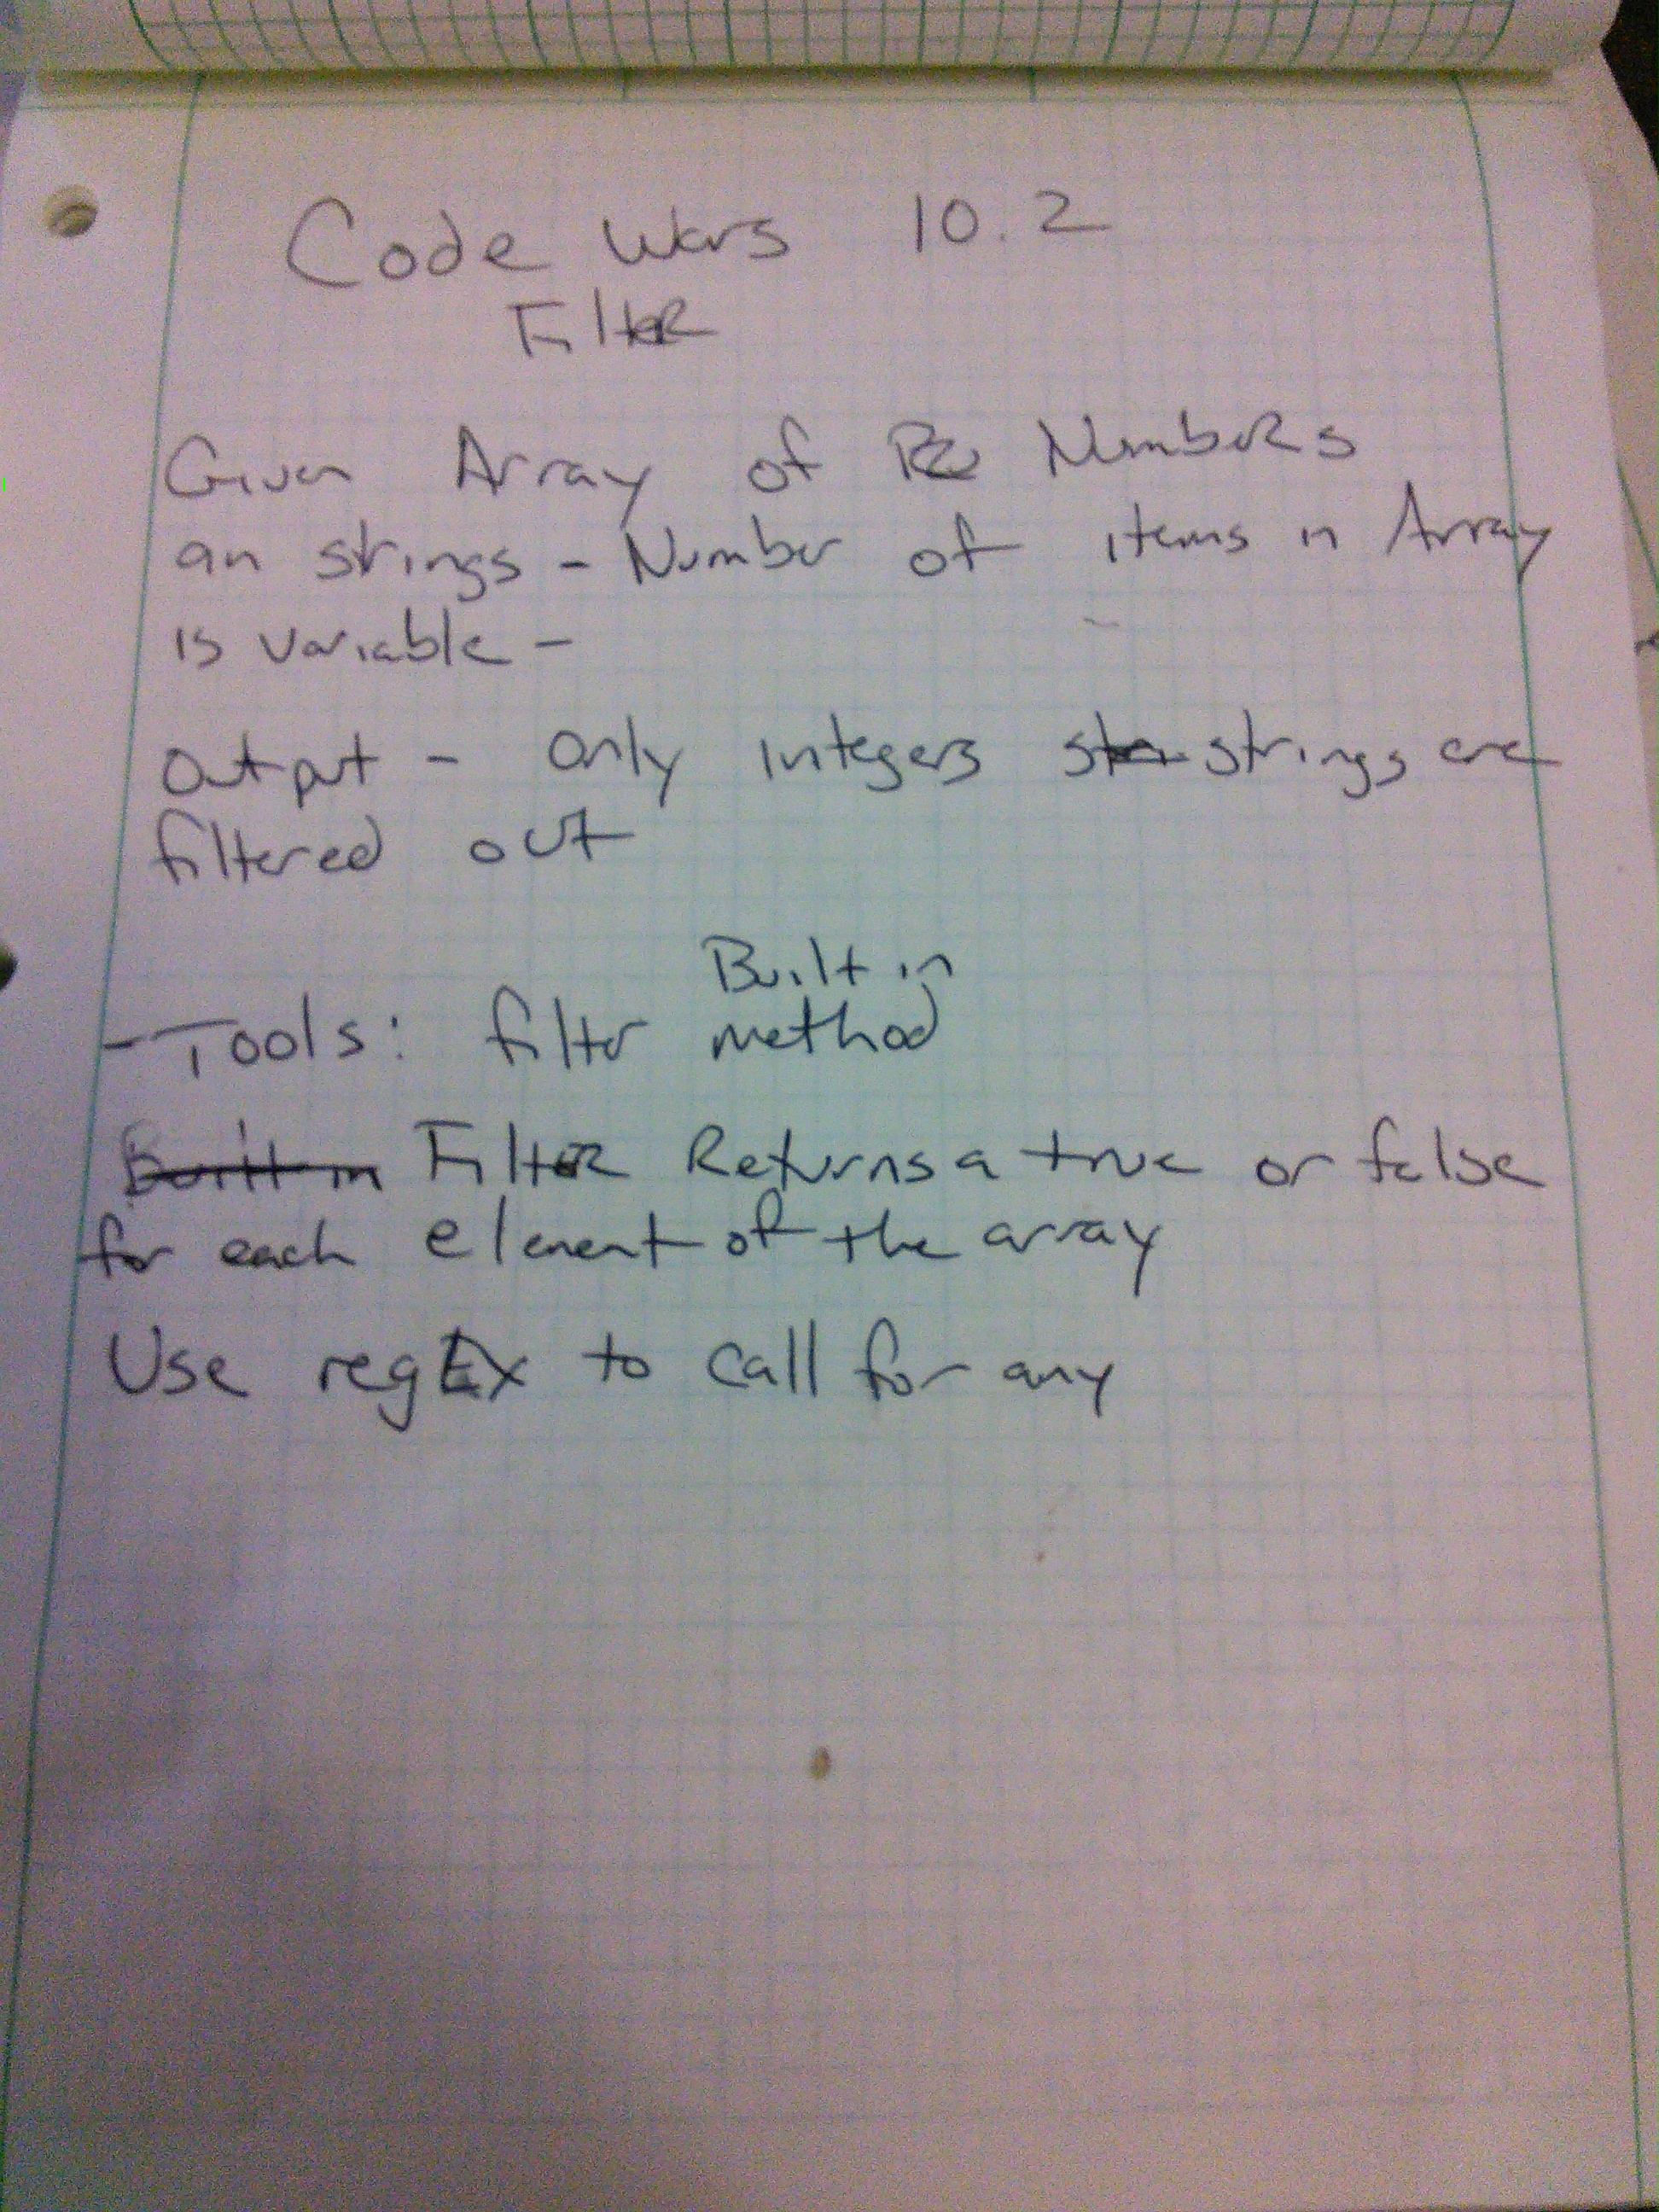 Code Wars 10.2
Filter
Given Array of Numbers
an strings - Number of items in Array
is variable -
Output - Only integers strings are
filtered out
Built in
- Tools: filter method
Built in Filter Returns a true or false
for each element of the array
Use regEx to call for any